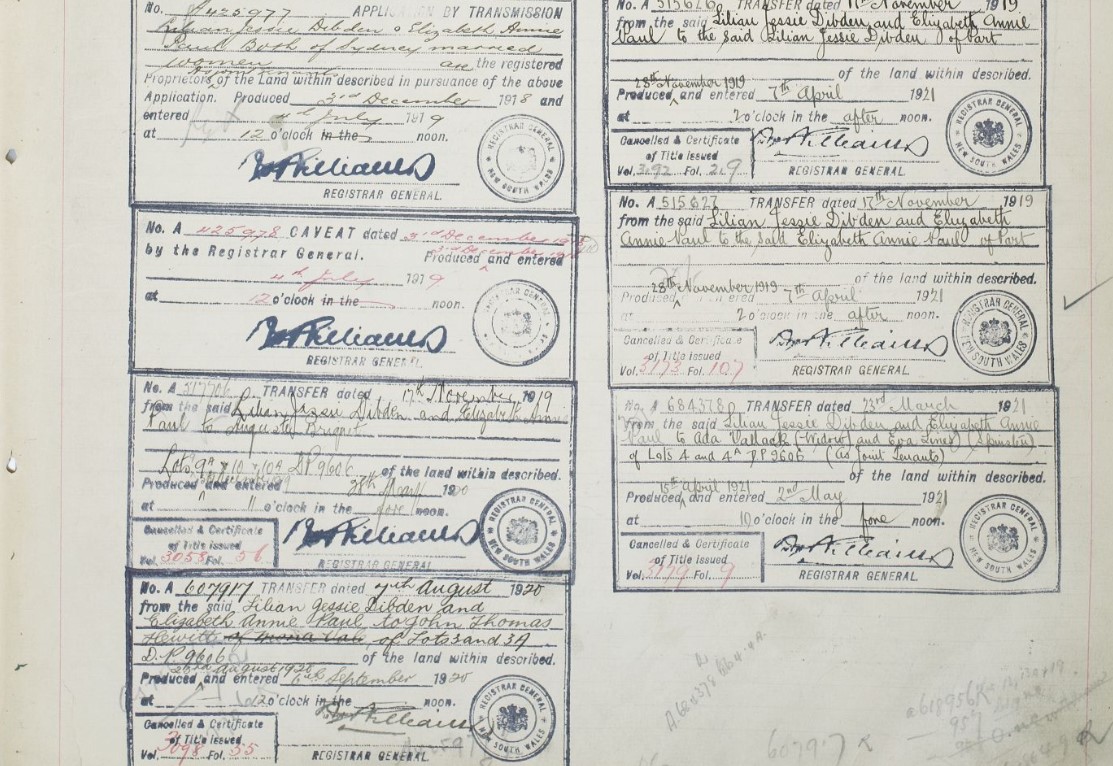 No. A 425977 APPLICATION BY TRANSMISSION
Lilian Jessie Dibden & Elizabeth Annie
Paul Both of Sydney married
women are the registered
Proprietors of the Land within described in pursuance of the above
Application. Produced 3rd December 1918 and
entered 4th July 1919
at 12 o'clock in the noon.
REGISTRAR GENERAL.
REGISTRAR GENERAL NEW SOUTH WALES
No. A 425978 CAVEAT dated 3rd December 1918
by the Registrar General. Produced and entered
3rd December 1918
4th July 1919
at 12 o'clock in the noon.
REGISTRAR GENERAL.
No. A 517706 TRANSFER dated 17th November 1919
from the said Lilian Jessie Dibden and Elizabeth Annie
Paul to Auguste Brignot
Lots 9A & 10 & 10A DP 9606 of the land within described.
Produced and entered 28th March 1920
at 11 o'clock in the fore noon.
Cancelled & Certificate
of Title issued
Vol. 3058 Fol. 56
REGISTRAR GENERAL
REGISTRAR GENERAL NEW SOUTH WALES
No. A 607917 TRANSFER dated 7th August 1920
from the said Lilian Jessie Dibden and
Elizabeth Annie Paul to John Thomas
Hewitt of Mona Vale of Lots 3 and 3A
D.P. 9606 of the land within described.
26th August 1920
Produced and entered 6th September 1920
at 12 o'clock in the noon.
Cancelled & Certificate
of Title issued
Vol. 3098 Fol. 55
REGISTRAR GENERAL.
REGISTRAR GENERAL NEW SOUTH WALES
No. A 515626 TRANSFER dated 17th November 1919.
from the said Lilian Jessie Dibden and Elizabeth Annie
Paul to the said Lilian Jessie Dibden of Part
of the land within described.
28th November 1919
Produced and entered 7th April 1921
2 o'clock in the after noon.
Cancelled & Certificate
of Title issued
Vol. 3192 Fol. 219
REGISTRAR GENERAL.
REGISTRAR GENERAL NEW SOUTH WALES
No. A 515627 TRANSFER dated 17th November 1919
from the said Lilian Jessie Dibden and Elizabeth
Annie Paul to the said Elizabeth Annie Paul of Part
of the land within described.
28th November 1919
Produced entered 7th April 1921
at 2 o'clock in the after noon.
Cancelled & Certificate
of Title issued
3173 Fol. 107
REGISTRAR GENERAL
REGISTRAR GENERAL NEW SOUTH WALES
No. A 684378 TRANSFER dated 23rd March 1921
from the said Lilian Jessie Dibden and Elizabeth Annie
Paul to Ada Vallack (Widow) and Eva Lines (Spinster)
of Lots 4 and 4A DP 9606 (as Joint Tenants)
of the land within described.
15th April 1921
Produced and entered 2nd May 1921
at 10 o'clock in the fore noon.
Cancelled & Certificate
of Title issued
Vol. 3179 Fol. 9
REGISTRAR GENERAL
REGISTRAR GENERAL NEW SOUTH WALES
607917